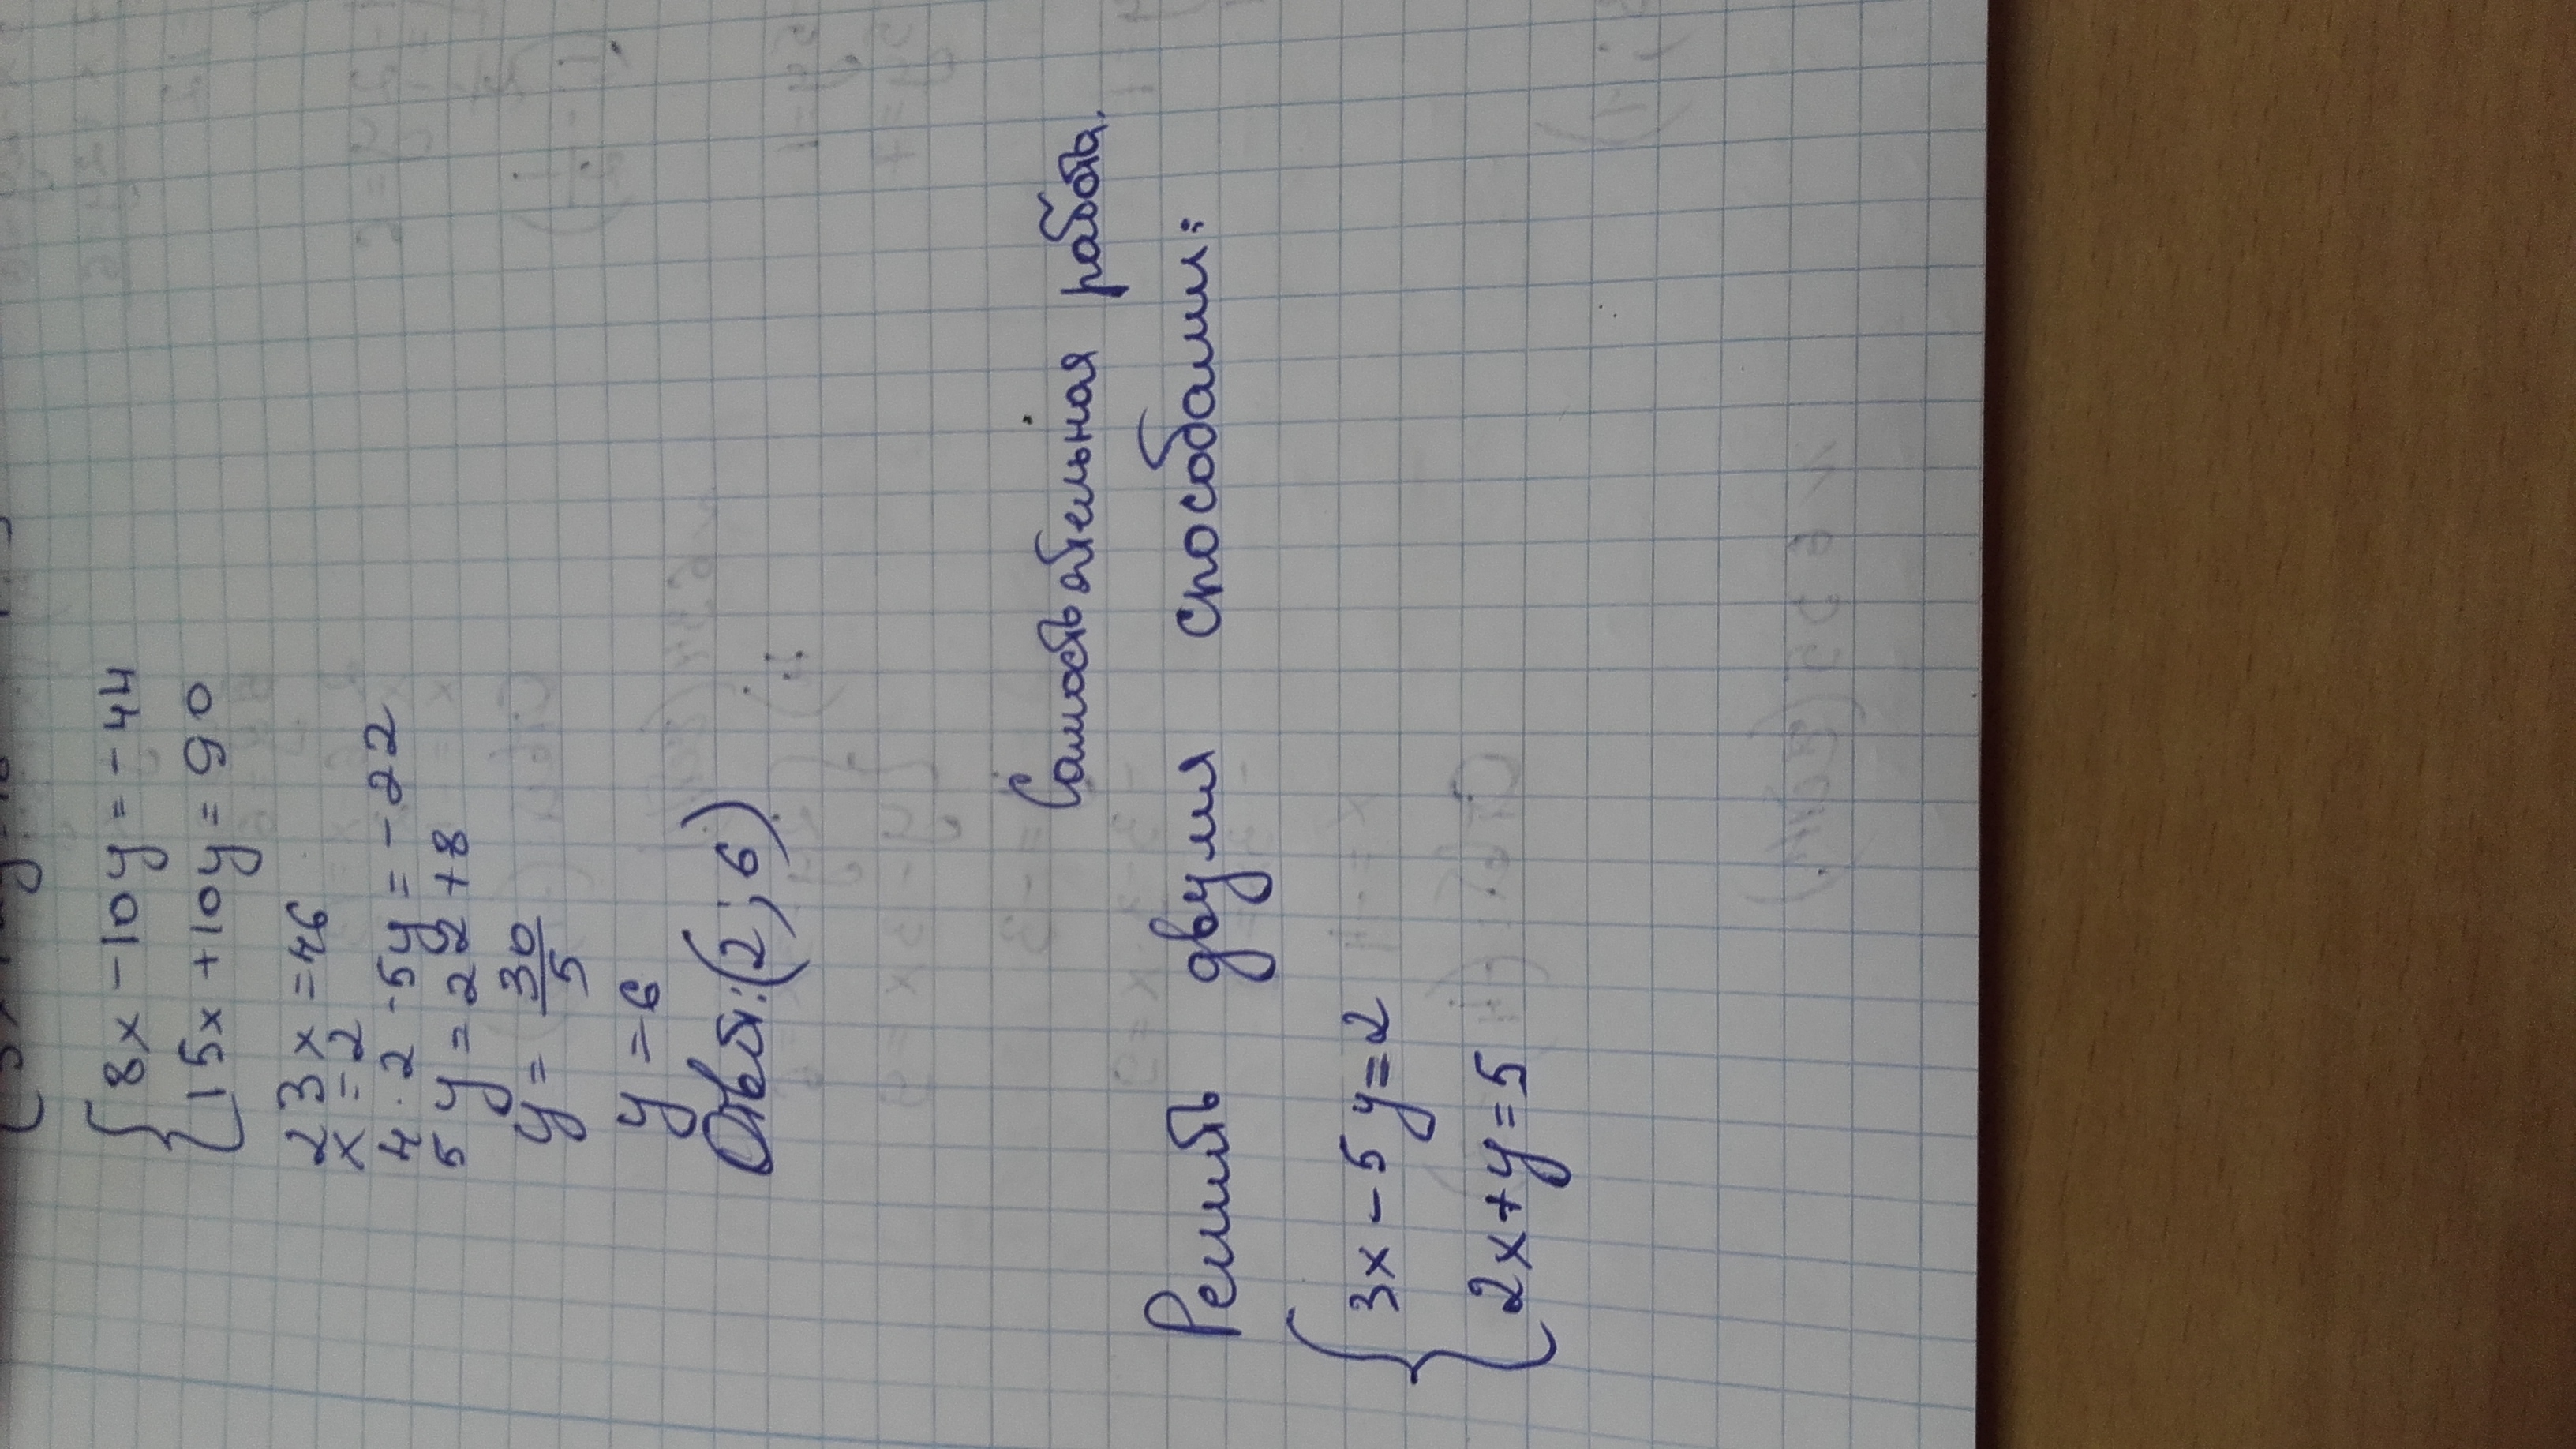 8x - 10y = - 44
15x + 10y = 90
23x = 46
x = 2
4 · 2 - 5y = - 22
5y = 22 + 8
y = 30/5
y = 6
Ответ: (2; 6)
Самостоятельная работа.
Решить двумя способами:
3x - 5y = 2
2x + y = 5